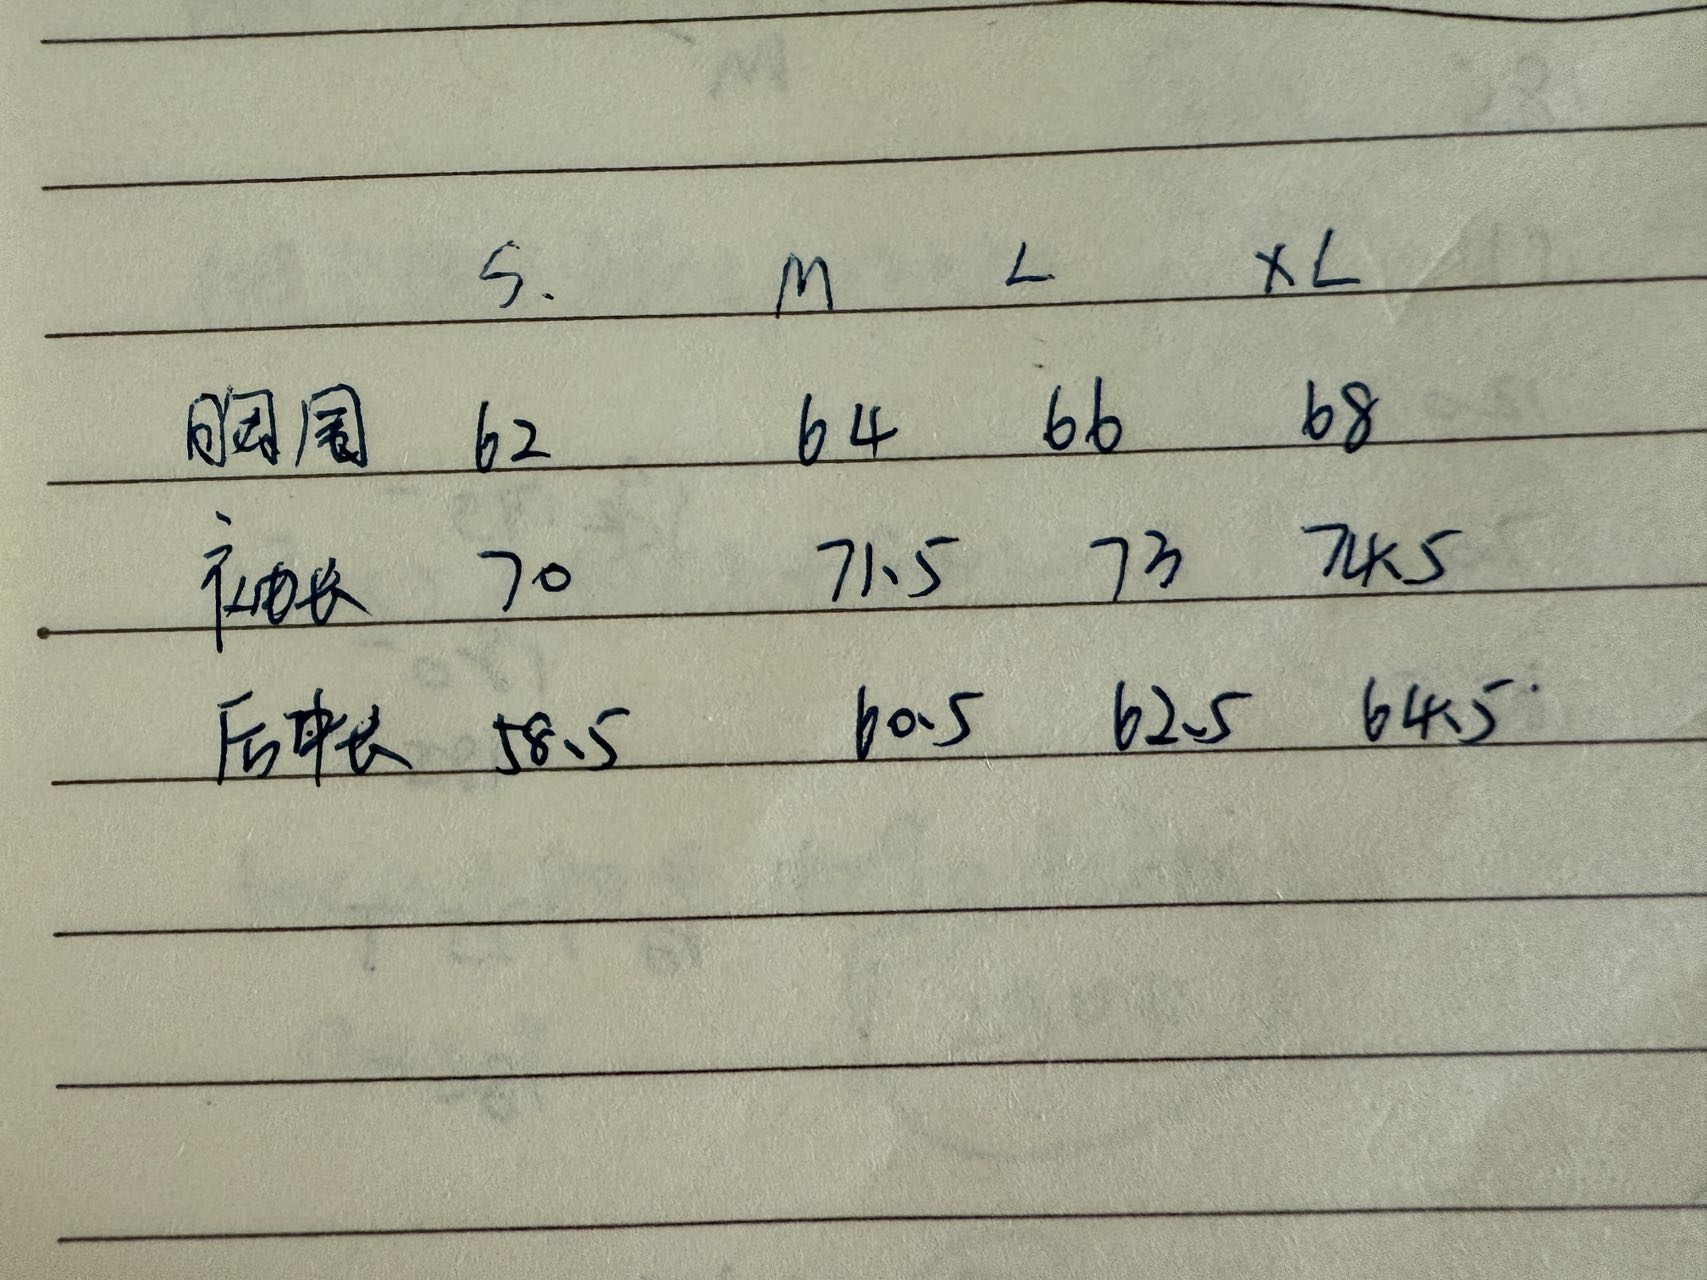 S. M L XL
胸围 62 64 66 68
袖长 70 71.5 73 74.5
后中长 58.5 60.5 62.5 64.5